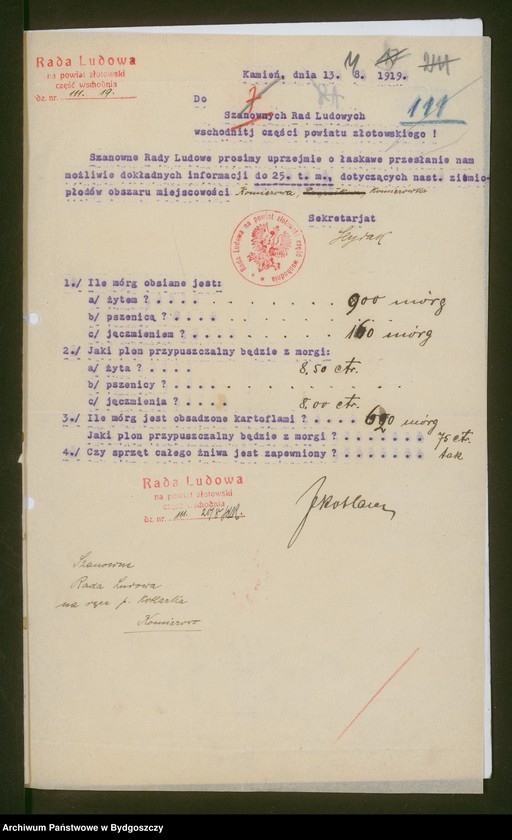 Rada Ludowa
na powiat złotowski
część wschodnia
dz. nr. III. 19.
Kamień, dnia 13. 8. 1919.
7
111
Do
Szanownych Rad Ludowych
wschodnitj części powiatu złotowskiego !
Szanowne Rady Ludowe prosimy uprzejmie o łaskawe przesłanie nam
możliwie dokładnych informacji do 25. t. m., dotyczących nast. ziemio-
płodów obszaru miejscowości Komierowa, Komierówka
Sekretarjat
Rada Ludowa na powiat złotowski część wschodnia
1./ Ile mórg obsiane jest:
a/ żytem ? . . . . . . . . . . . 900 mórg
b/ pszenicą ? . . . . . . . . . .
c/ jączmieniem ? . . . . . . . . . 160 mórg
2./ Jaki plon przypuszczalny będzie z morgi:
a/ żyta ? . . . . 8,50 ctr.
b/ pszenicy ? . . . . . . . . . . .
c/ jączmienia ? . . . . . 8,00 ctr.
3./ Ile mórg jest obsadzone kartoflami ? . . . . mórg
Jaki plon przypuszczalny będzie z morgi ? . . . . . . . 75 ctr.
4./ Czy sprzęt całego żniwa jest zapewniony ? . . . . . . . tak
Rada Ludowa
na powiat złotowski
część wschodnia
dz. nr. III.
Szanowna
Rada Ludowa
na ręce p.
Komierowo
Archiwum Państwowe w Bydgoszczy